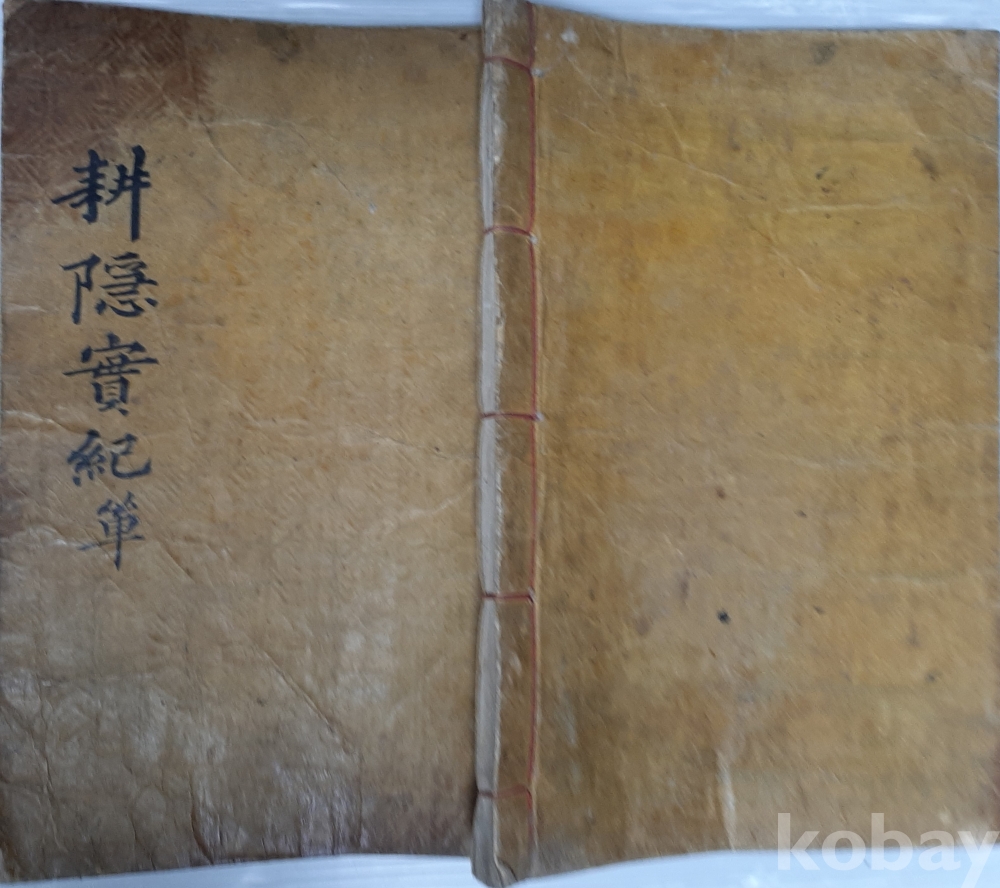 耕隱實紀單
kobay